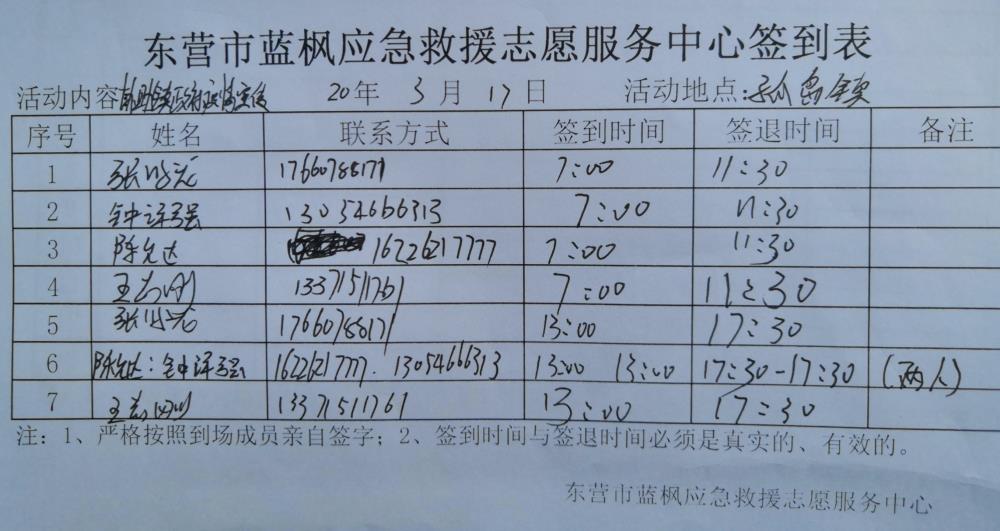 东营市蓝枫应急救援志愿服务中心签到表
活动内容 20年 3月 17日 活动地点:孤岛镇
序号 姓名 联系方式 签到时间 签退时间 备注
1 17660788171 7:00 11:30
2 13054666313 7:00 11:30
3 陈允达 16226217777 7:00 11:30
4 王志刚 13371511761 7:00 11:30
5 17660788171 13:00 17:30
6 陈允达: 1622621777. 13054666313 13:00 13:00 17:30-17:30 (两人)
7 王志刚 13371511761 13:00 17:30
注:1、严格按照到场成员亲自签字;2、签到时间与签退时间必须是真实的、有效的。
东营市蓝枫应急救援志愿服务中心